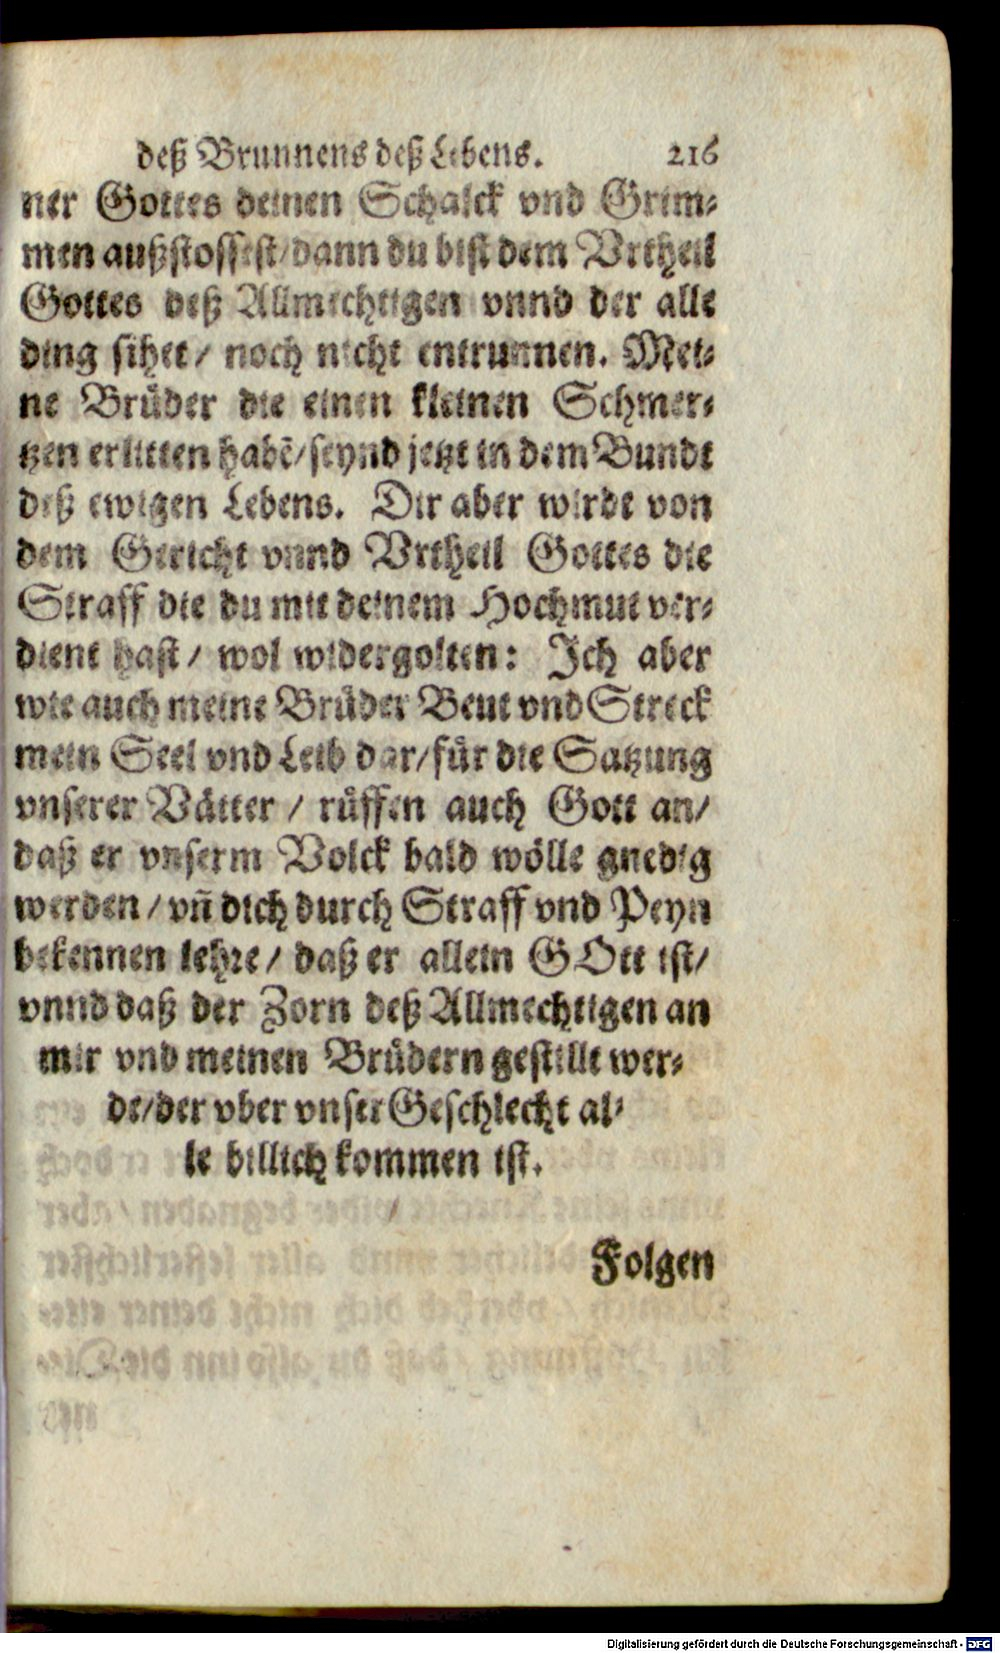 deß Brunnens deß Lebens. 216
ner Gottes deinen Schalck vnd Grim-
men außstossest/dann du bist dem Vrtheil
Gottes deß Allmechtigen vnnd der alle
ding sihet/ noch nicht entrunnen. Mei-
ne Bruͤder die einen kleinen Schmer-
tzen erlitten habẽ/seynd jetzt in dem Bundt
deß ewigen Lebens. Dir aber wirdt von
dem Gericht vnnd Vrtheil Gottes die
Straff die du mit deinem Hochmut ver-
dient hast/ wol widergolten: Ich aber
wie auch meine Bruͤder Beut vnd Streck
mein Seel vnd Leib dar/fuͤr die Satzung
vnserer Vaͤtter / ruͤffen auch Gott an/
daß er vnserm Volck bald woͤlle gnedig
werden/vñ dich durch Straff vnd Peyn
bekennen lehre/ daß er allein GOtt ist/
vnnd daß der Zorn deß Allmechtigen an
mir vnd meinen Bruͤdern gestillt wer-
de/der vber vnser Geschlecht al-
le billich kommen ist.
Folgen
Digitalisierung gefördert durch die Deutsche Forschungsgemeinschaft - DFG